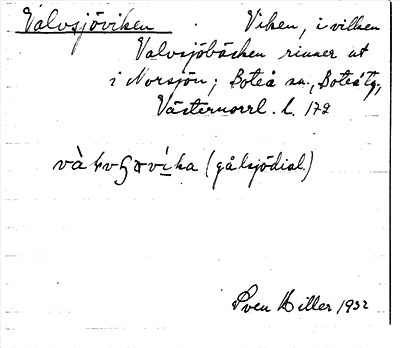 Valvsjöviken . Viken, i vilken
Valvsjöbäcken rinner ut
i Norsjön; Boteå sn., Boteå tg,
Västernorrl. l. 172
(gålsjödial.)
Sven Hiller 1932